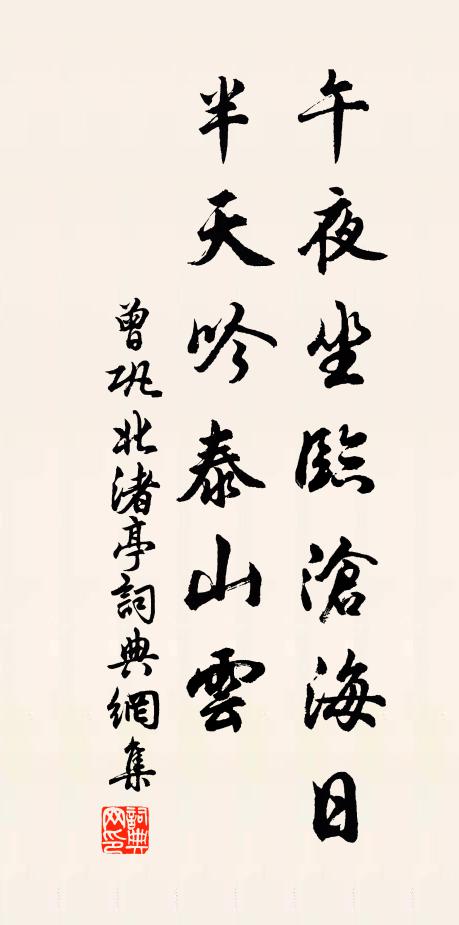 午夜坐臨滄海日
半天吟泰山雲
曾巩北渚亭詞典網集
詞典网印